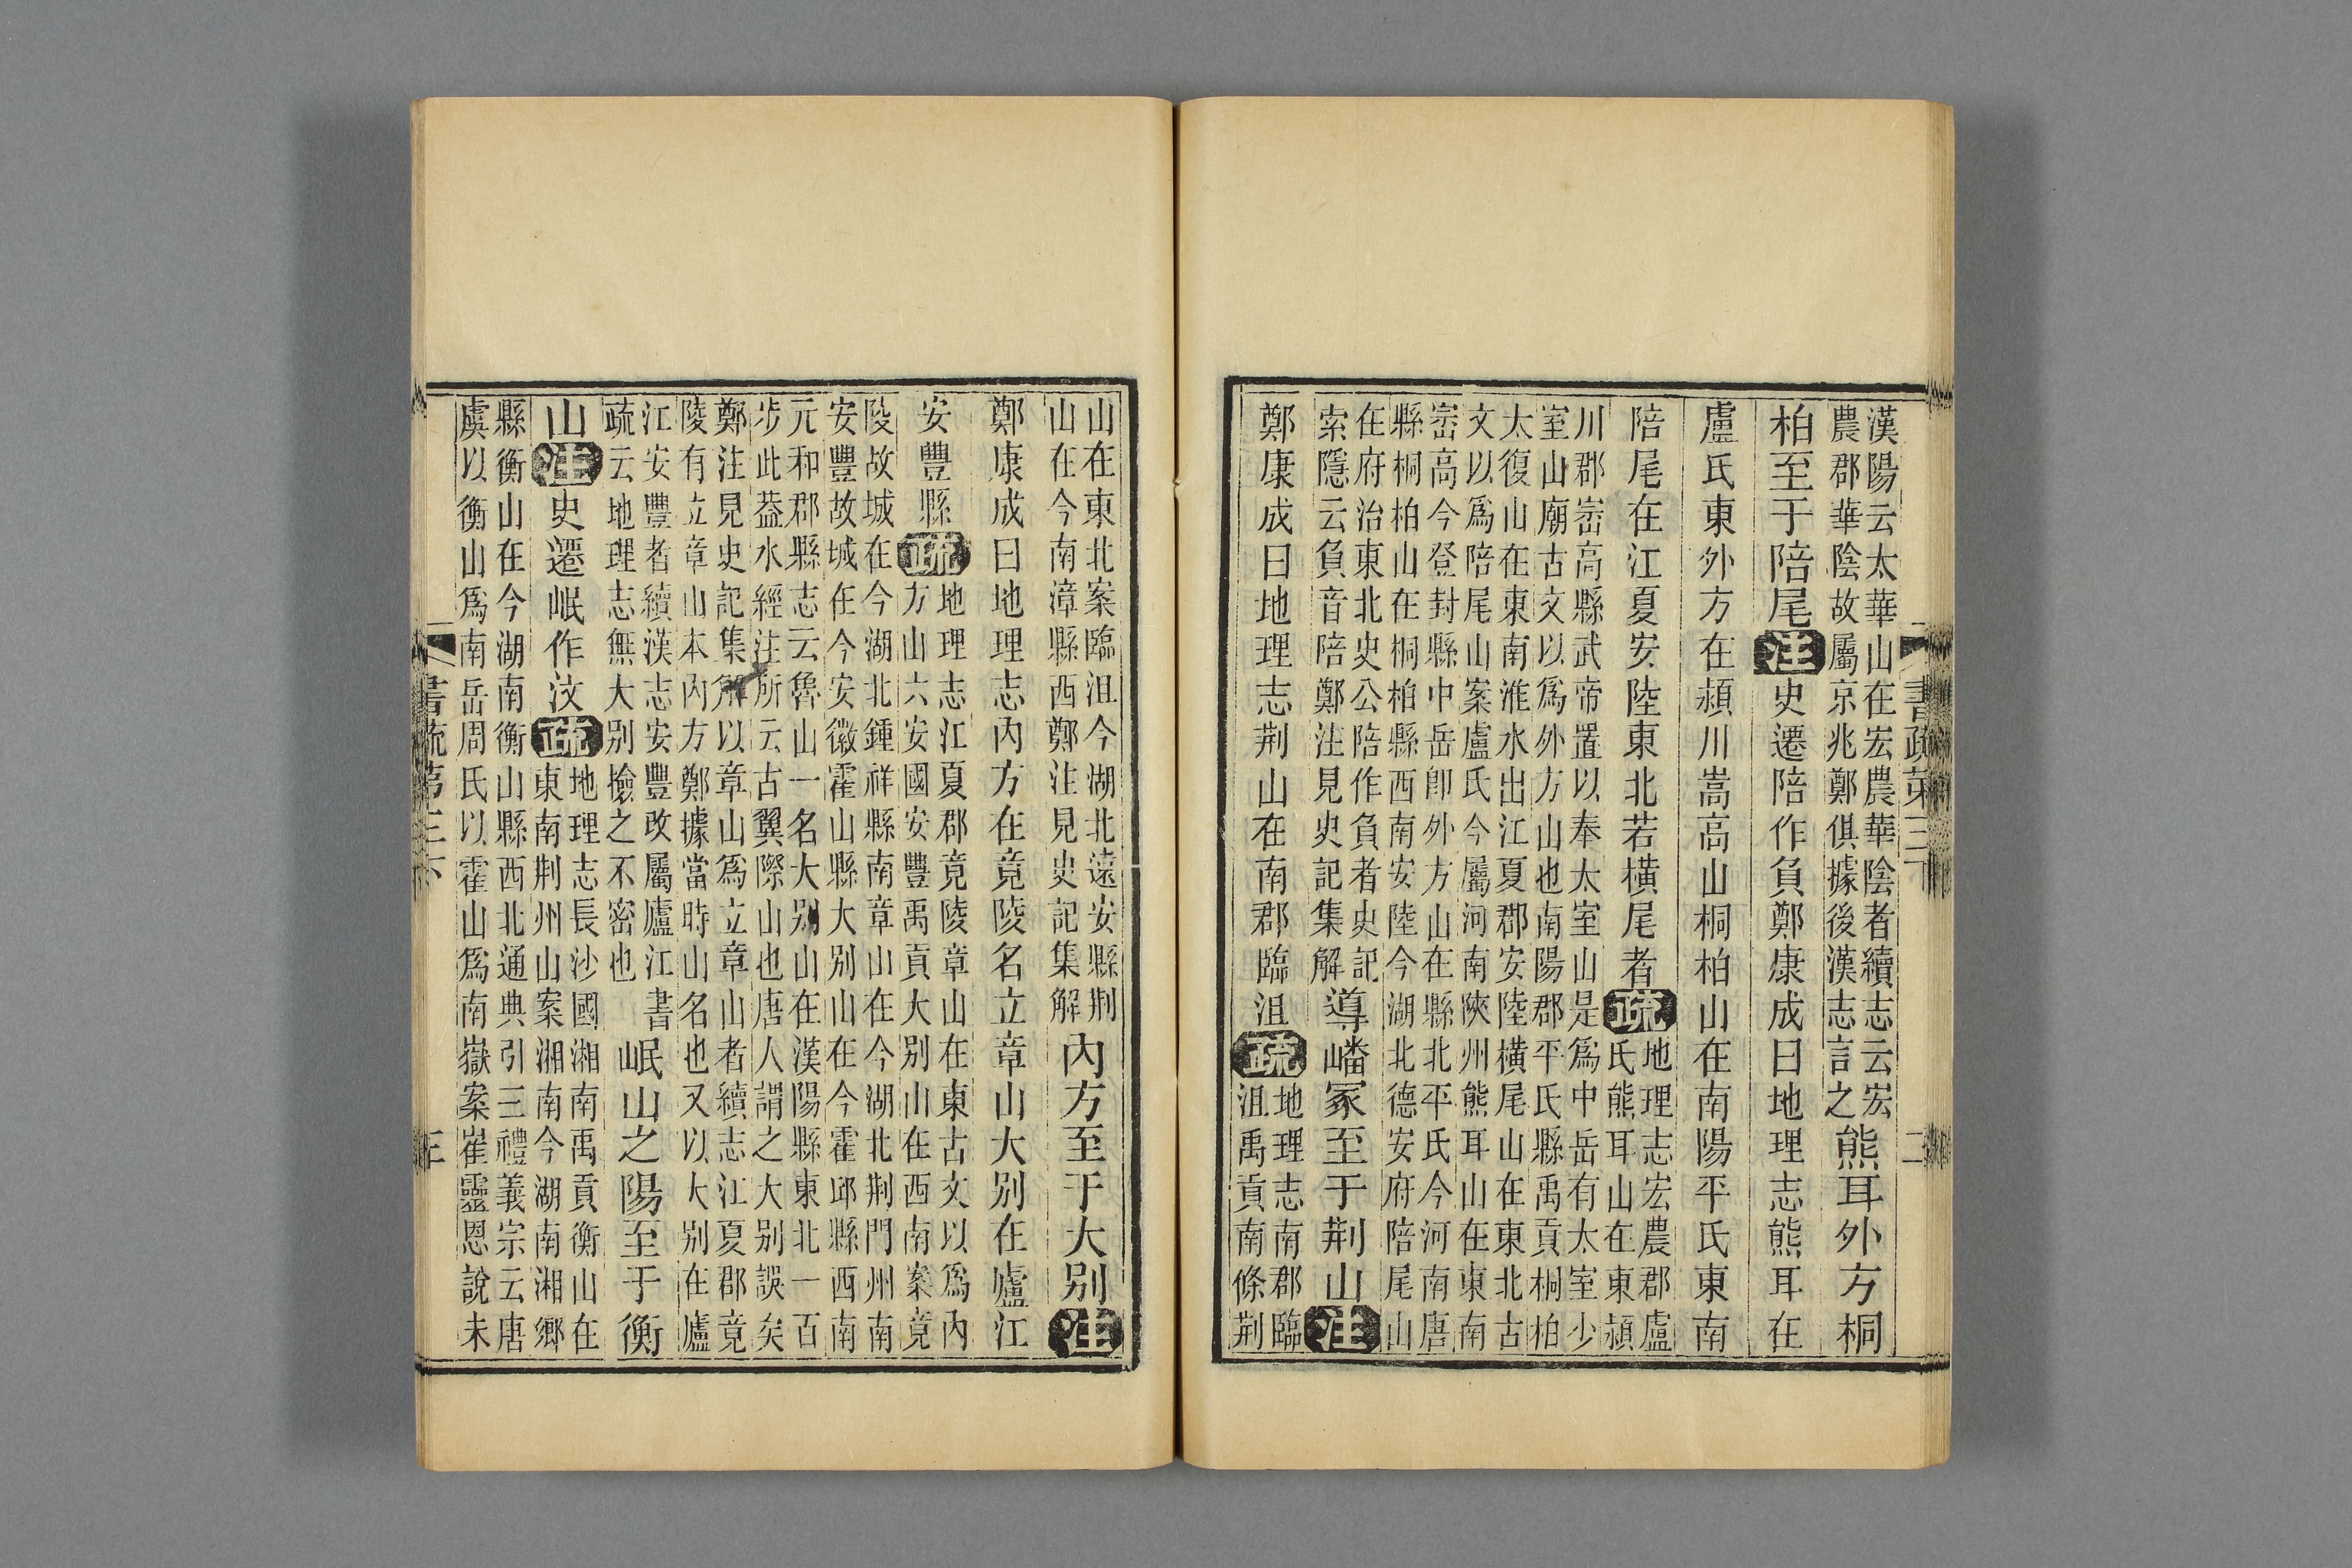 書疏第三下 二
漢陽云太華山在宏農華陰者續志云宏
農郡華陰故屬京兆鄭俱據後漢志言之
熊耳外方桐
柏至于陪尾注史遷陪作負鄭康成曰地理志熊耳在
盧氏東外方在潁川嵩高山桐柏山在南陽平氏東南
陪尾在江夏安陸東北若橫尾者疏地理志宏農郡盧
氏熊耳山在東潁
川郡崈高縣武帝置以奉太室山是爲中岳有太室少
室山廟古文以爲外方山也南陽郡平氏縣禹貢桐柏
太復山在東南淮水出江夏郡安陸橫尾山在東北古
文以爲陪尾山案盧氏今屬河南陝州熊耳山在東南
崈高今登封縣中岳卽外方山在縣北平氏今河南唐
縣桐柏山在桐柏縣西南安陸今湖北德安府陪尾山
在府治東北史公陪作負者史記
索隱云負音陪鄭注見史記集解
導嶓冢至于荆山注
鄭康成曰地理志荆山在南郡臨沮疏地理志南郡臨
沮禹貢南條荆
山在東北案臨沮今湖北遠安縣荆
山在今南漳縣西鄭注見史記集解
內方至于大别注
鄭康成曰地理志內方在竟陵名立章山大别在廬江
安豐縣疏地理志江夏郡竟陵章山在東古文以爲內
方山六安國安豐禹貢大别山在西南案竟
陵故城在今湖北鍾祥縣南章山在今湖北荆門州南
安豐故城在今安徽霍山縣大别山在今霍邱縣西南
元和郡縣志云魯山一名大别山在漢陽縣東北一百
步此葢水經注所云古翼際山也唐人謂之大别誤矣
鄭注見史記集解以章山爲立章山者續志江夏郡竟
陵有立章山本內方鄭據當時山名也又以大别在廬
江安豐者續漢志安豐改屬廬江書
疏云地理志無大别撿之不密也
岷山之陽至于衡
山注史遷岷作汶疏地理志長沙國湘南禹貢衡山在
東南荆州山案湘南今湖南湘鄉
縣衡山在今湖南衡山縣西北通典引三禮義宗云唐
虞以衡山爲南岳周氏以霍山爲南嶽案崔靈恩說未
書疏第三下 三